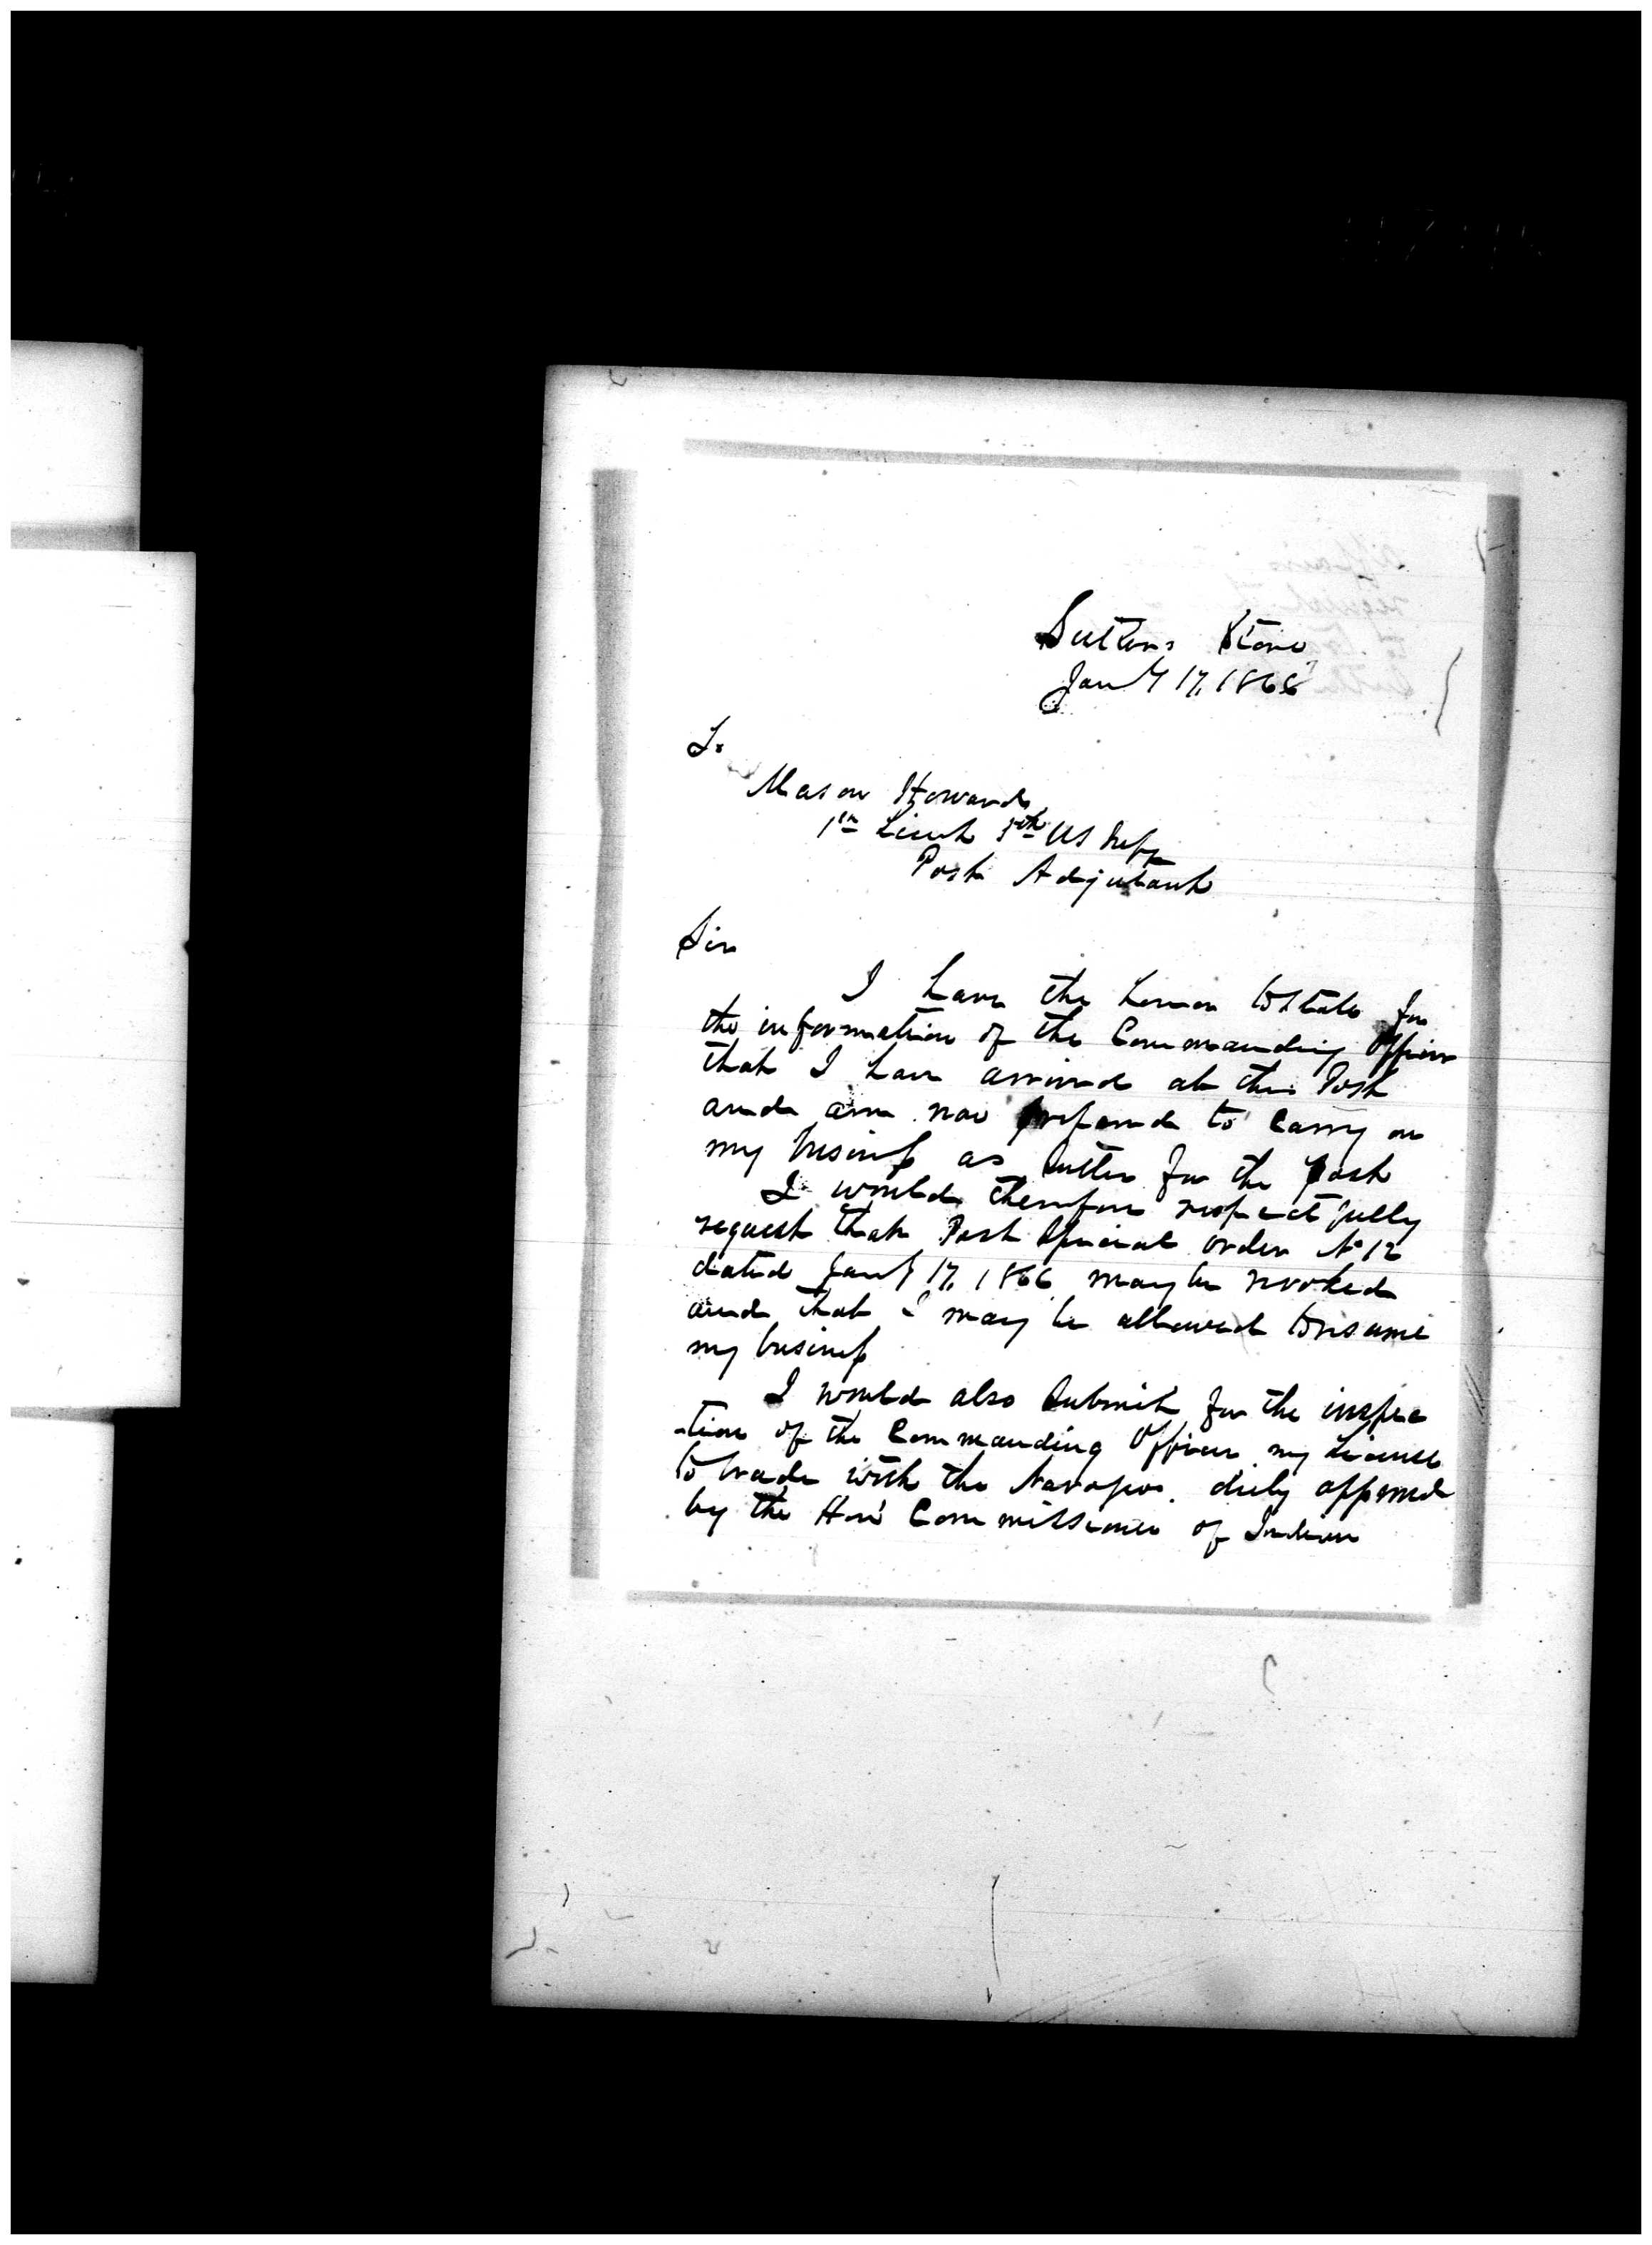 Sutlers Store
Jany 17, 1866
To
Mason Howard,
1st Lieut 5th US Infy
Post Adjutant
Sir
I have the honor to state for
the information of the Commanding Officer
that I have arrived at this Post
and am now prepared to carry on
my business as Sutler for the post
I would therefore respectfully
request that Post Special Order No 12
dated Jany 17, 1866 may be revoked
and that I may be allowed to resume
my business
I would also submit for the inspec
-tion of the Commanding Officer my License
to trade with the Navajos. duly approved
by the Hon Commissioner of Indian